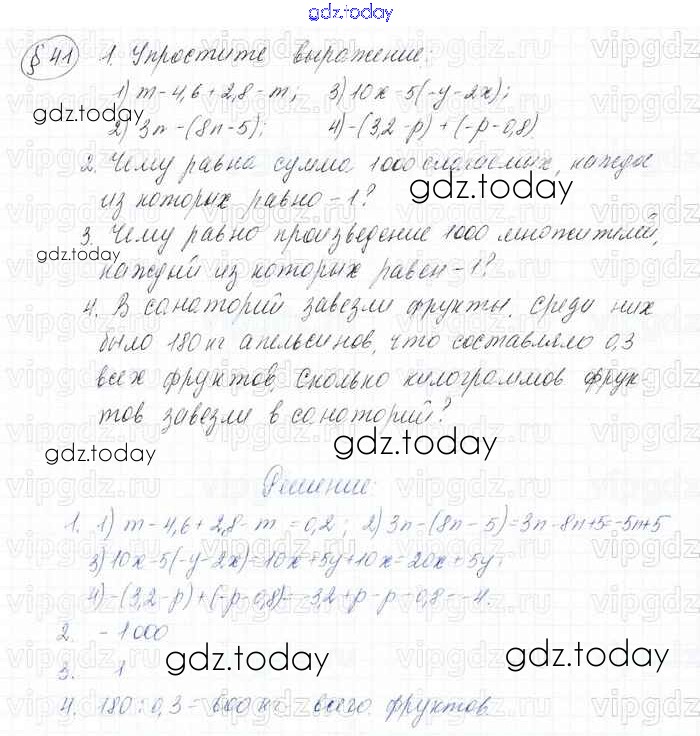 gdz.today
§ 41 1. Упростите выражение:
1) m-4,6+2,8-m; 3) 10x-5(-y-2x);
gdz.today
2) 3n-(8n-5); 4) -(3,2-p)+(-p-0,8).
2. Чему равна сумма 1000 слагаемых, каждое
gdz.today
из которых равно -1?
3. Чему равно произведение 1000 множителей,
gdz.today
каждый из которых равен -1?
4. В санаторий завезли фрукты. Среди них
было 180 кг апельсинов, что составляло 0,3
всех фруктов. Сколько килограммов фрук
тов завезли в санаторий?
gdz.today
gdz.today
Решение:
1. 1) m-4,6+2,8-m = 0,2; 2) 3n-(8n-5)=3n-8n+5=-5n+5
3) 10x-5(-y-2x)=10x+5y+10x=20x+5y;
4) -(3,2-p)+(-p-0,8)=-3,2+p-p-0,8=-4.
2. -1000
gdz.today
3. 1
gdz.today
4. 180:0,3=600 кг - всего фруктов.